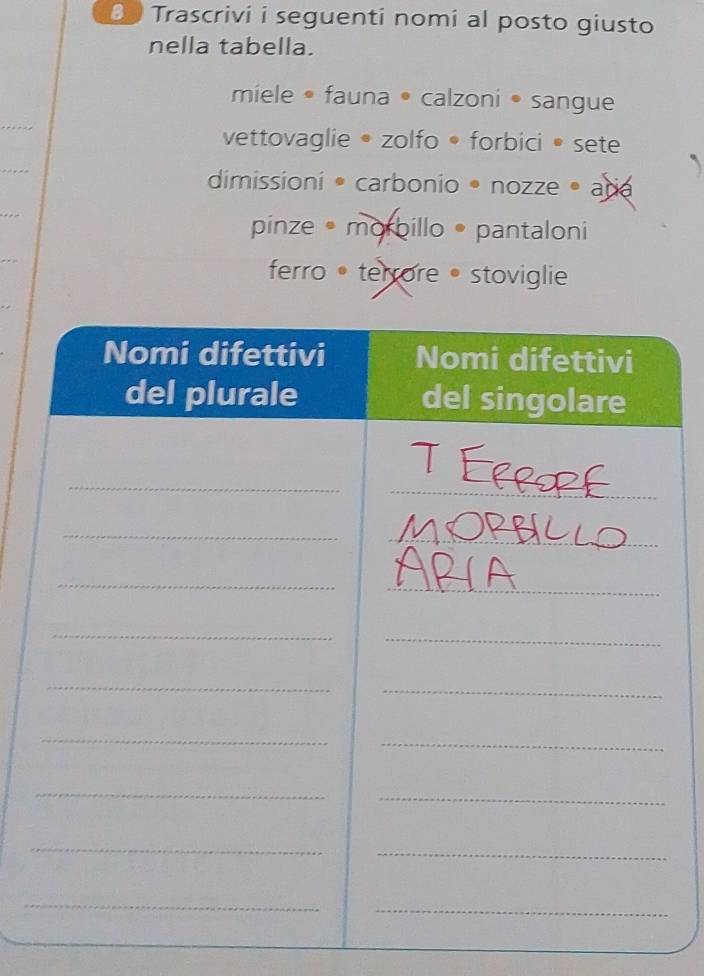 8 Trascrivi i seguenti nomi al posto giusto
nella tabella.
miele • fauna • calzoni • sangue
vettovaglie • zolfo • forbici • sete
dimissioni • carbonio • nozze • aria
pinze • morbillo • pantaloni
ferro • terrore • stoviglie
Nomi difettivi
del plurale
Nomi difettivi
del singolare
TERRORE
MORBILLO
ARIA